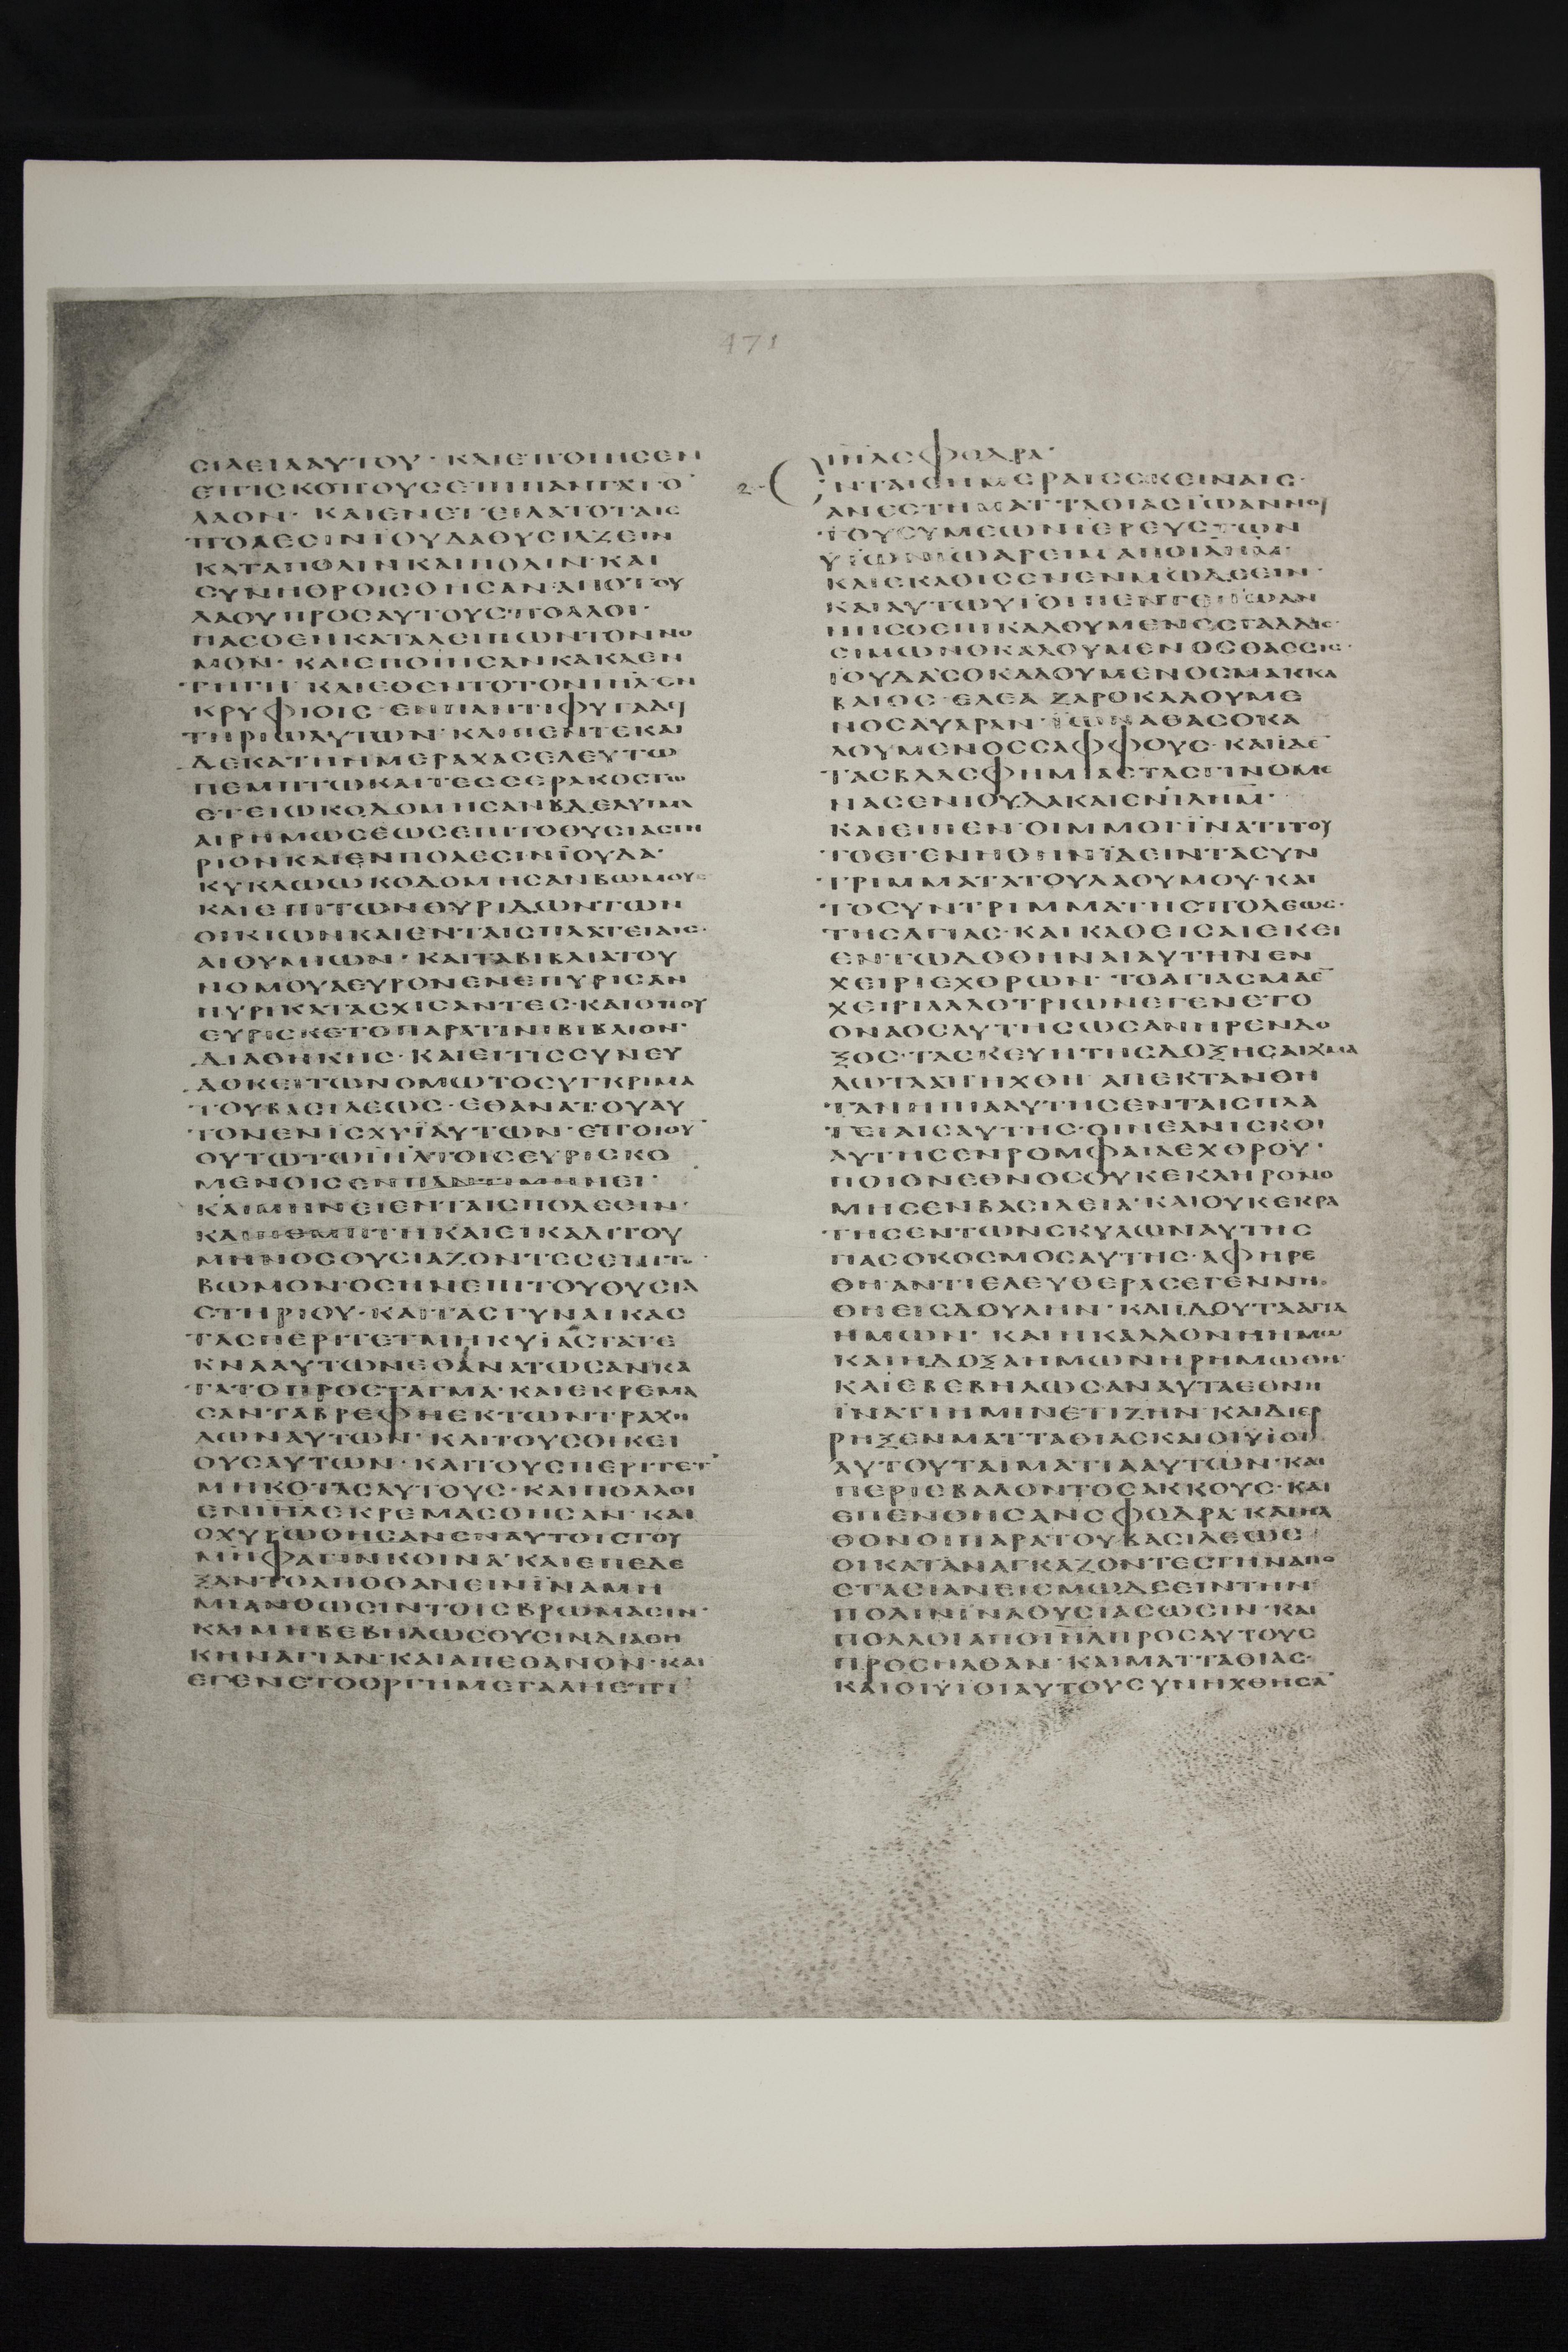 171
ϹΙΛΕΙΑΑΥΤΟΥ· ΚΑΙΕΠΟΙΗϹΕΝ
ΕΠΙϹΚΟΠΟΥϹΕΠΙΠΑΝΤΑΤΟ
ΛΑΟΝ· ΚΑΙΕΝΕΤΕΙΛΑΤΟΤΑΙϹ
ΠΟΛΕϹΙΝΙΟΥΔΑΘΥϹΙΑΖΕΙΝ
ΚΑΤΑΠΟΛΙΝΚΑΙΠΟΛΙΝ·ΚΑΙ
ϹΥΝΗΘΡΟΙϹΘΗϹΑΝΑΠΟΤΟΥ
ΛΑΟΥΠΡΟϹΑΥΤΟΥϹΠΟΛΛΟΙ·
ΠΑϹΟΕΝΚΑΤΑΛΕΙΠΩΝΤΟΝΝΟ
ΜΟΝ· ΚΑΙΕΠΟΙΗϹΑΝΚΑΚΑΕΝ
ΤΗΓΗ ΚΑΙΕΘΕΝΤΟΤΟΝΙΗΛΕΝ
ΚΡΥΦΙΟΙϹ·ΕΝΠΑΝΤΙΦΥΓΑΔΕΥ
ΤΗΡΙΩΑΥΤΩΝ·ΚΑΙΠΕΝΤΕΚΑΙ
ΔΕΚΑΤΗΗΜΕΡΑΧΑϹΕΛΕΥΤΩ
ΠΕΜΠΤΩΚΑΙΤΕϹϹΕΡΑΚΟϹΤΩ
ΕΤΕΙΩΚΟΔΟΜΗϹΑΝΒΔΕΛΥΓΜΑ
ΑΙΡΗΜΩϹΕΩϹΕΠΙΤΟΘΥϹΙΑϹΤΗ
ΡΙΟΝΚΑΙΕΝΠΟΛΕϹΙΝΪΟΥΔΑ·
ΚΥΚΛΩΩΚΟΔΟΜΗϹΑΝΒΩΜΟΥϹ
ΚΑΙΕΠΙΤΩΝΘΥΡΙΔΩΝΤΩΝ
ΟΙΚΙΩΝΚΑΙΕΝΤΑΙϹΠΛΑΤΕΙΑΙϹ·
ΑΙΘΥΜΙΩΝ· ΚΑΙΤΑΒΙΒΛΙΑΤΟΥ
ΝΟΜΟΥΑΕΥΡΟΝΕΝΕΠΥΡΙϹΑΝ
ΠΥΡΙΚΑΤΑϹΧΙϹΑΝΤΕϹ·ΚΑΙΟΠΟΥ
ΕΥΡΙϹΚΕΤΟΠΑΡΑΤΙΝΙΒΙΒΛΙΟΝ·
ΔΙΑΘΗΚΗϹ·ΚΑΙΕΙΤΙϹϹΥΝΕΥ
ΔΟΚΕΙΤΩΝΟΜΩΤΟϹΥΓΚΡΙΜΑ
ΤΟΥΒΑϹΙΛΕΩϹ·ΕΘΑΝΑΤΟΥΑΥ
ΤΟΝΕΝΙϹΧΥΪΑΥΤΩΝ·ΕΠΟΙΟΥ
ΟΥΤΩΤΩΙΗΛΤΟΙϹΕΥΡΙϹΚΟ
ΜΕΝΟΙϹΕΝΠΑΝΤΙΜΗΝΕΙ·
ΚΑΙΜΗΝΕΙΕΝΤΑΙϹΠΟΛΕϹΙΝ·
ΚΑΙΠΕΜΠΤΗΚΑΙΕΙΚΑΔΙΤΟΥ
ΜΗΝΟϹΘΥϹΙΑΖΟΝΤΕϹΕΠΙΤΟ·
ΒΩΜΟΝ·ΟϹΗΝΕΠΙΤΟΥΘΥϹΙΑ
ϹΤΗΡΙΟΥ·ΚΑΙΤΑϹΓΥΝΑΙΚΑϹ
ΤΑϹΠΕΡΙΤΕΤΜΗΚΥΙΑϹΤΑΤΕ
ΚΝΑΑΥΤΩΝΕΘΑΝΑΤΩϹΑΝΚΑ
ΤΑΤΟΠΡΟϹΤΑΓΜΑ·ΚΑΙΕΚΡΕΜΑ
ϹΑΝΤΑΒΡΕΦΗΕΚΤΩΝΤΡΑΧΗ
ΛΩΝΑΥΤΩΝ· ΚΑΙΤΟΥϹΟΙΚΕΙ
ΟΥϹΑΥΤΩΝ·ΚΑΙΤΟΥϹΠΕΡΙΤΕΤ
ΜΗΚΟΤΑϹΑΥΤΟΥϹ·ΚΑΙΠΟΛΛΟΙ
ΕΝΙΗΛΕΚΡΕΜΑϹΘΗϹΑΝ·ΚΑΙ
ΟΧΥΡΩΘΗϹΑΝΕΝΑΥΤΟΙϹΤΟΥ
ΜΗΦΑΓΕΙΝΚΟΙΝΑ·ΚΑΙΕΠΕΔΕ
ΞΑΝΤΟΑΠΟΘΑΝΕΙΝΪΝΑΜΗ
ΜΙΑΝΘΩϹΙΝΤΟΙϹΒΡΩΜΑϹΙΝ·
ΚΑΙΜΗΒΕΒΗΛΩϹΟΥϹΙΝΔΙΑΘΗ
ΚΗΝΑΓΙΑΝ·ΚΑΙΑΠΕΘΑΝΟΝ·ΚΑΙ
ΕΓΕΝΕΤΟΟΡΓΗΜΕΓΑΛΗΕΠΙ
ΙΗΛϹΦΟΔΡΑ·
2- ΕΝΤΑΙϹΗΜΕΡΑΙϹΕΚΕΙΝΑΙϹ·
ΑΝΕϹΤΗΜΑΤΤΑΘΙΑϹΪΩΑΝΝΟΥ
ΤΟΥϹΥΜΕΩΝΪΕΡΕΥϹΤΩΝ
ΥΙΩΝΙΩΑΡΕΙΜΑΠΟΙΛΗΜ·
ΚΑΙΕΚΑΘΙϹΕΝΕΝΜΩΔΕΕΙΝ·
ΚΑΙΑΥΤΩΥΙΟΙΠΕΝΤΕΪΩΑΝ
ΝΗϹΟΕΠΙΚΑΛΟΥΜΕΝΟϹΓΑΔΔΙϹ·
ϹΙΜΩΝΟΚΑΛΟΥΜΕΝΟϹΘΑϹϹΙϹ·
ΪΟΥΔΑϹΟΚΑΛΟΥΜΕΝΟϹΜΑΚΚΑ
ΒΑΙΟϹ·ΕΛΕΑΖΑΡΟΚΑΛΟΥΜΕ
ΝΟϹΑΥΑΡΑΝ·ΪΩΝΑΘΑϹΟΚΑ
ΛΟΥΜΕΝΟϹϹΑΦΦΟΥϹ·ΚΑΙΪΔΕ
ΤΑϹΒΛΑϹΦΗΜΙΑϹΤΑϹΓΙΝΟΜΕ
ΝΑϹΕΝΙΟΥΔΑΚΑΙΕΝΪΛΗΜ·
ΚΑΙΕΙΠΕΝ·ΟΙΜΜΟΙΪΝΑΤΙΤΟΥ
ΤΟΕΓΕΝΗΘΗΝΪΔΕΙΝΤΑϹΥΝ
ΤΡΙΜΜΑΤΑΤΟΥΛΑΟΥΜΟΥ·ΚΑΙ
ΤΟϹΥΝΤΡΙΜΜΑΤΗϹΠΟΛΕΩϹ·
ΤΗϹΑΓΙΑϹ·ΚΑΙΚΑΘΕΙϹΑΙΕΚΕΙ
ΕΝΤΩΔΟΘΗΝΑΙΑΥΤΗΝΕΝ
ΧΕΙΡΙΕΧΘΡΩΝ· ΤΟΑΓΙΑϹΜΑΕ
ΧΕΙΡΙΑΛΛΟΤΡΙΩΝΕΓΕΝΕΤΟ
ΟΝΑΟϹΑΥΤΗϹΩϹΑΝΗΡΕΝΔΟ
ΞΟϹ·ΤΑϹΚΕΥΗΤΗϹΔΟΞΗϹΑΙΧΜΑ
ΛΩΤΑΑΠΗΧΘΗ ΑΠΕΚΤΑΝΘΗ
ΤΑΝΗΠΙΑΑΥΤΗϹΕΝΤΑΙϹΠΛΑ
ΤΕΙΑΙϹΑΥΤΗϹ·ΟΙΝΕΑΝΙϹΚΟΙ
ΑΥΤΗϹΕΝΡΟΜΦΑΙΑΕΧΘΡΟΥ·
ΠΟΙΟΝΕΘΝΟϹΟΥΚΕΚΛΗΡΟΝΟ
ΜΗϹΕΝΒΑϹΙΛΕΙΑ·ΚΑΙΟΥΚΕΚΡΑ
ΤΗϹΕΝΤΩΝϹΚΥΛΩΝΑΥΤΗϹ
ΠΑϹΟΚΟϹΜΟϹΑΥΤΗϹ·ΑΦΗΡΕ
ΘΗ·ΑΝΤΙΕΛΕΥΘΕΡΑϹΕΓΕΝΝΗ·
ΘΗΕΙϹΔΟΥΛΗΝ·ΚΑΙΙΔΟΥΤΑΑΓΙΑ
ΗΜΩΝ· ΚΑΙΗΚΑΛΛΟΝΗΗΜΩ
ΚΑΙΗΔΟΞΑΗΜΩΝΗΡΗΜΩΘΗ·
ΚΑΙΕΒΕΒΗΛΩϹΑΝΑΥΤΑΕΘΝΗ
ΪΝΑΤΙΗΜΙΝΕΤΙΖΗΝ·ΚΑΙΔΙΕΡ
ΡΗΞΕΝΜΑΤΤΑΘΙΑϹΚΑΙΟΙΥΪΟΙ
ΑΥΤΟΥΤΑΪΜΑΤΙΑΑΥΤΩΝ·ΚΑΙ
ΠΕΡΙΕΒΑΛΟΝΤΟϹΑΚΚΟΥϹ·ΚΑΙ
ΕΠΕΝΘΗϹΑΝϹΦΟΔΡΑ·ΚΑΙΗΛ
ΘΟΝΟΙΠΑΡΑΤΟΥΒΑϹΙΛΕΩϹ
ΟΙΚΑΤΑΝΑΓΚΑΖΟΝΤΕϹΤΗΝΑΠΟ
ϹΤΑϹΙΑΝΕΙϹΜΩΔΕΕΙΝΤΗΝ
ΠΟΛΙΝΪΝΑΘΥϹΙΑϹΩϹΙΝ·ΚΑΙ
ΠΟΛΛΟΙΑΠΟΙΗΛΠΡΟϹΑΥΤΟΥϹ
ΠΡΟϹΗΛΘΑΝ·ΚΑΙΜΑΤΤΑΘΙΑϹ·
ΚΑΙΟΙΥΪΟΙΑΥΤΟΥϹΥΝΗΧΘΗϹΑ